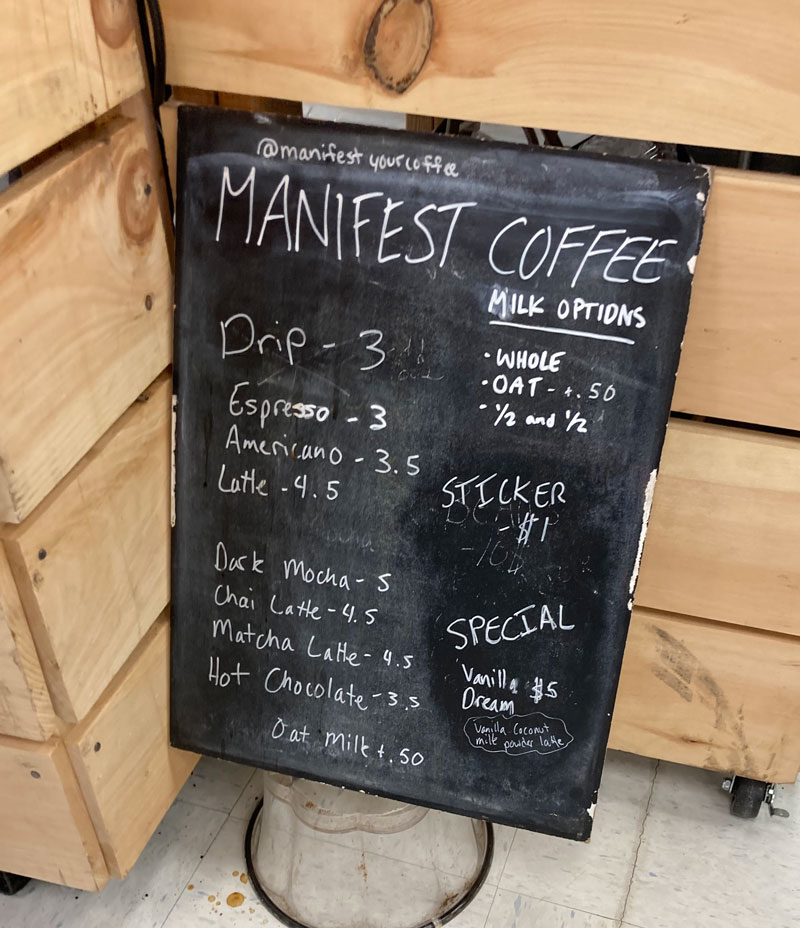 @manifestyourcoffee
MANIFEST COFFEE
Drip - 3
Espresso - 3
Americano - 3.5
Latte - 4.5
Dark Mocha - 5
Chai Latte - 4.5
Matcha Latte - 4.5
Hot Chocolate - 3.5
Oat Milk +.50
MILK OPTIONS
• WHOLE
• OAT - +.50
• 1/2 and 1/2
STICKER
- $1
SPECIAL
Vanilla $5
Dream
Vanilla Coconut
milk powder latte